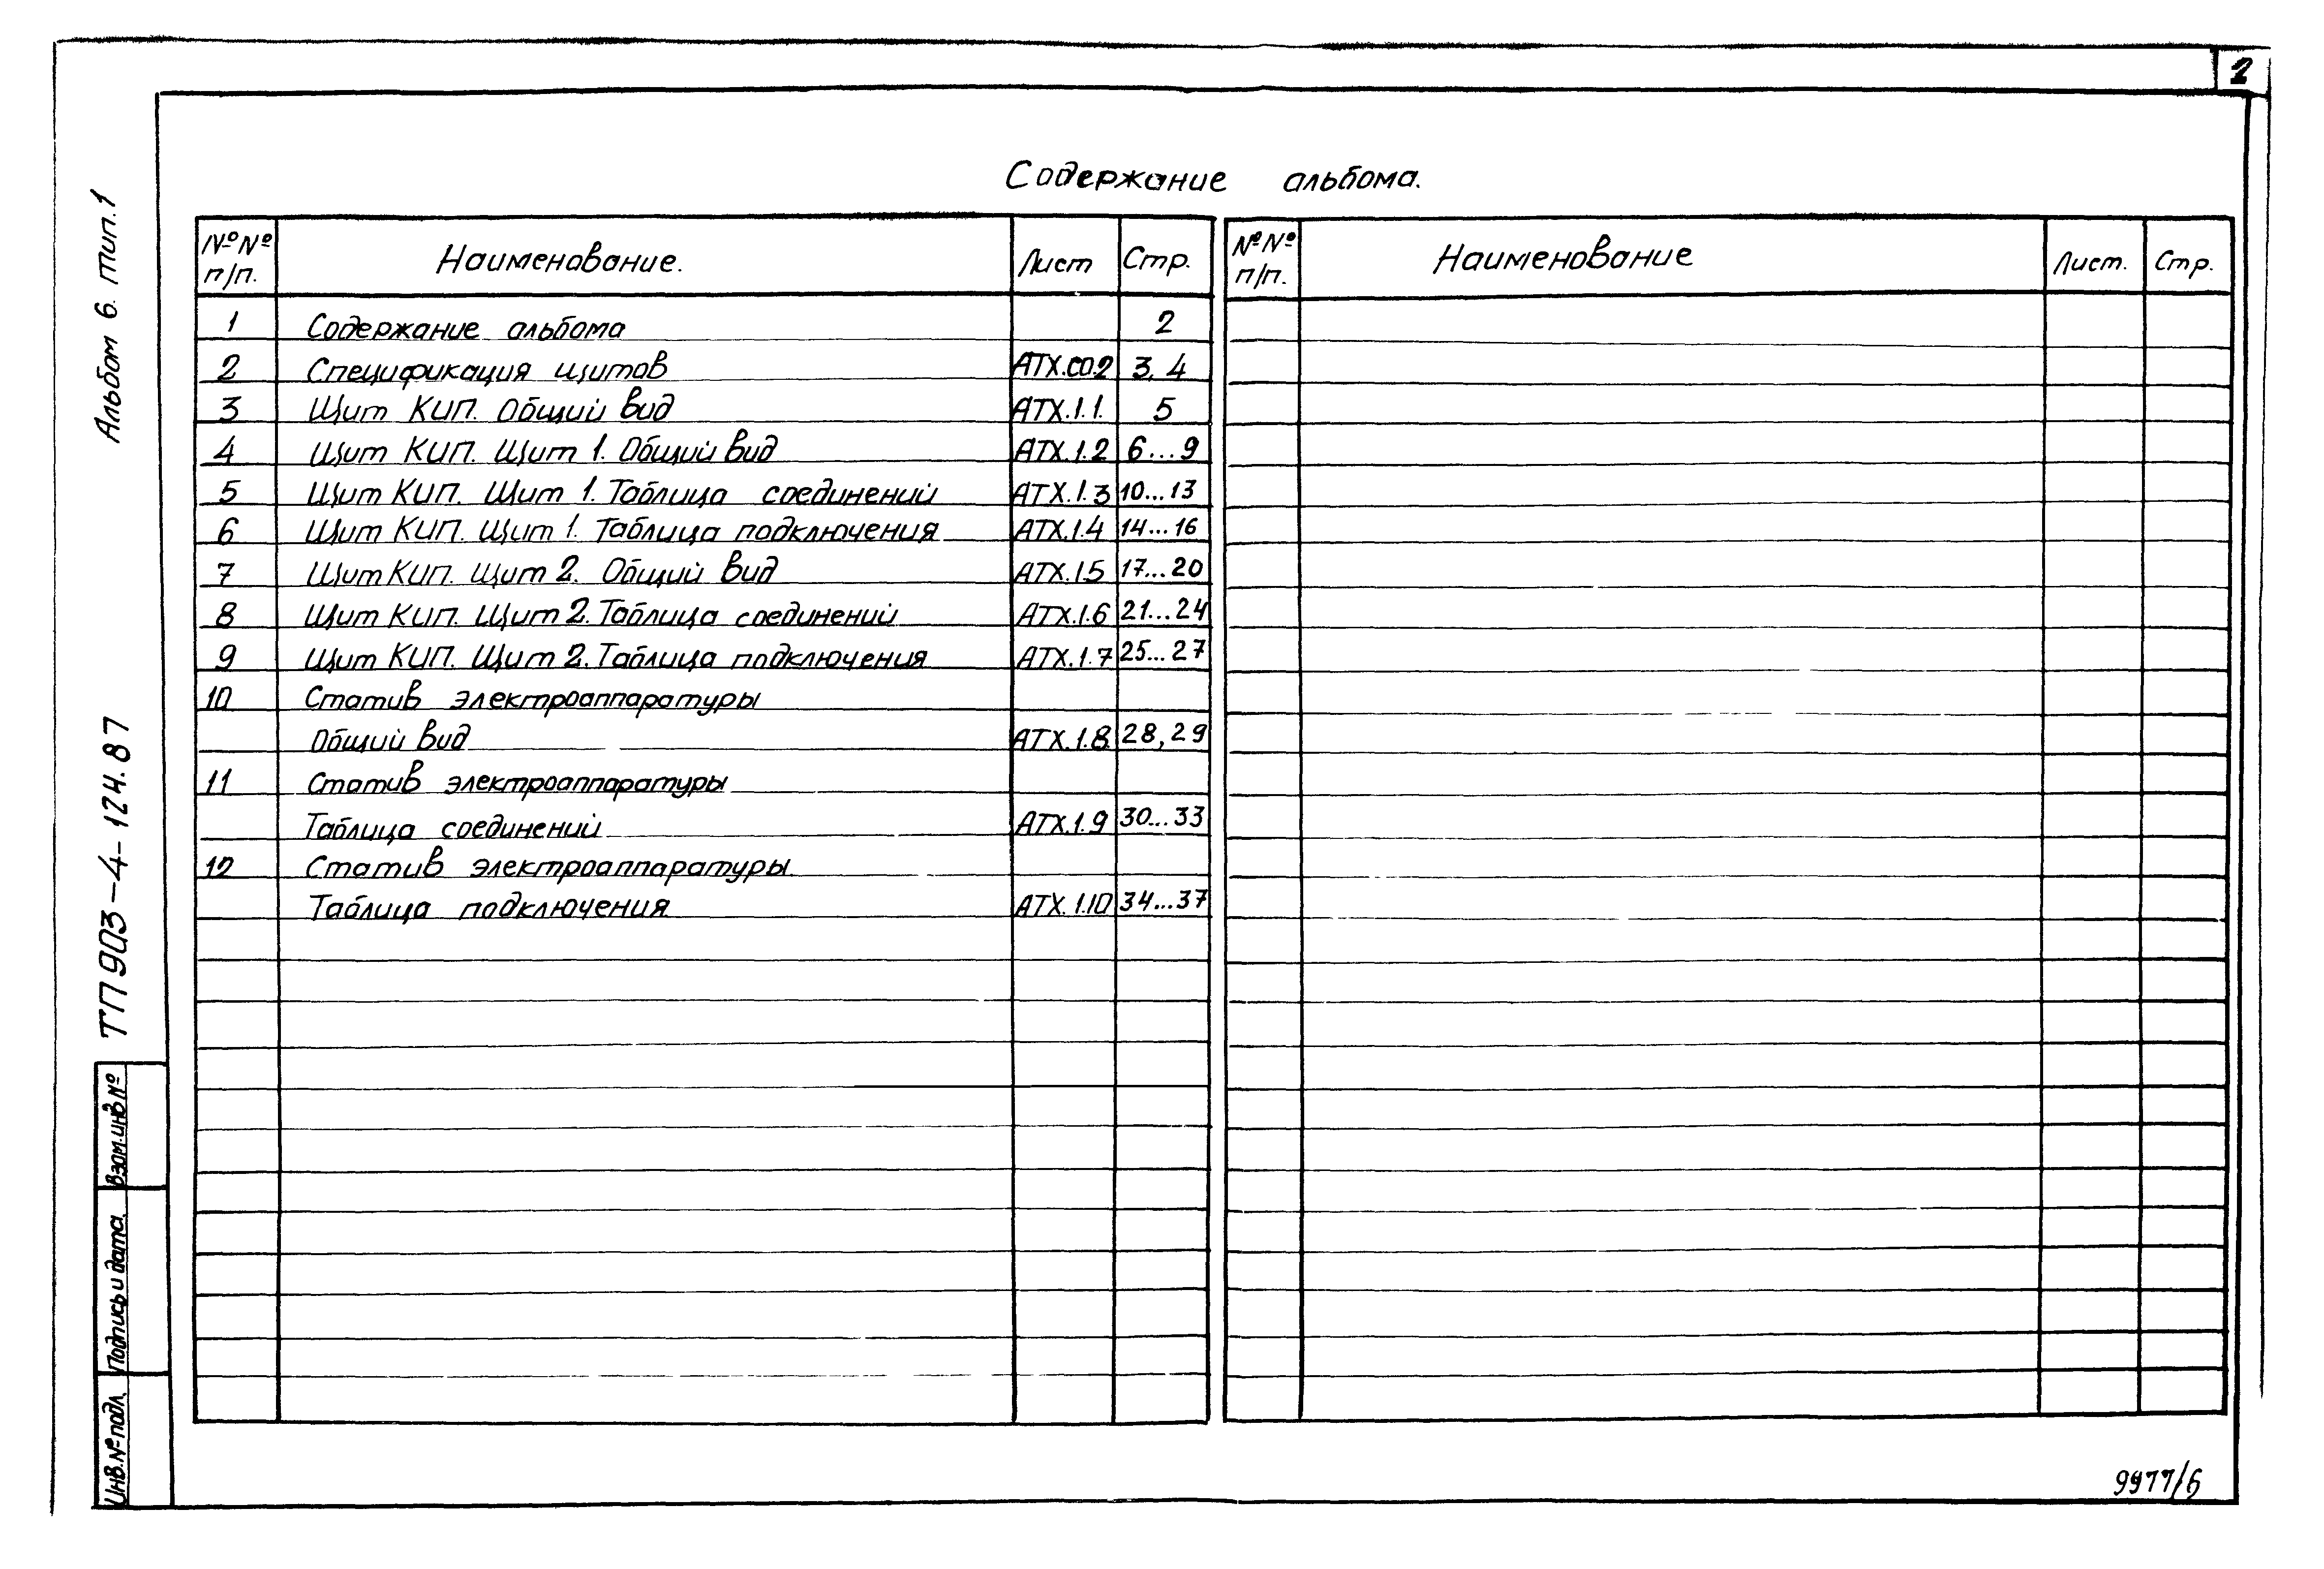 2
Содержание альбома.
№№ п/п. Наименование. Лист Стр.
1 Содержание альбома 2
2 Спецификация щитов АТХ.СО.2 3, 4
3 Щит КИП. Общий вид АТХ.1.1. 5
4 Щит КИП. Щит 1. Общий вид АТХ.1.2 6...9
5 Щит КИП. Щит 1. Таблица соединений АТХ.1.3 10...13
6 Щит КИП. Щит 1. Таблица подключения АТХ.1.4 14...16
7 Щит КИП. Щит 2. Общий вид АТХ.1.5 17...20
8 Щит КИП. Щит 2. Таблица соединений АТХ.1.6 21...24
9 Щит КИП. Щит 2. Таблица подключения АТХ.1.7 25...27
10 Статив электроаппаратуры
Общий вид АТХ.1.8 28, 29
11 Статив электроаппаратуры
Таблица соединений АТХ.1.9 30...33
12 Статив электроаппаратуры.
Таблица подключения АТХ.1.10 34...37
№№ п/п. Наименование Лист. Стр.
Альбом 6. тип.1
ТП 903-4-124.87
Взам.инв №
Подпись и дата.
Инв.№ подл.
9977/6